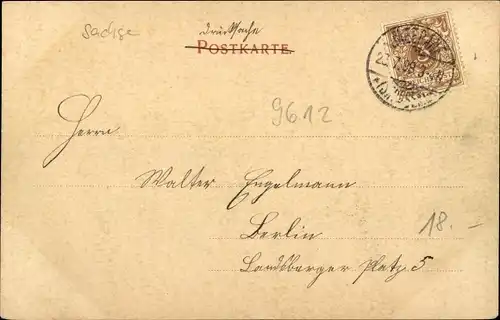 Drucksache
POSTKARTE
9612
Herrn
Walter Engelmann
Berlin
18.-
Landsberger Platz 5